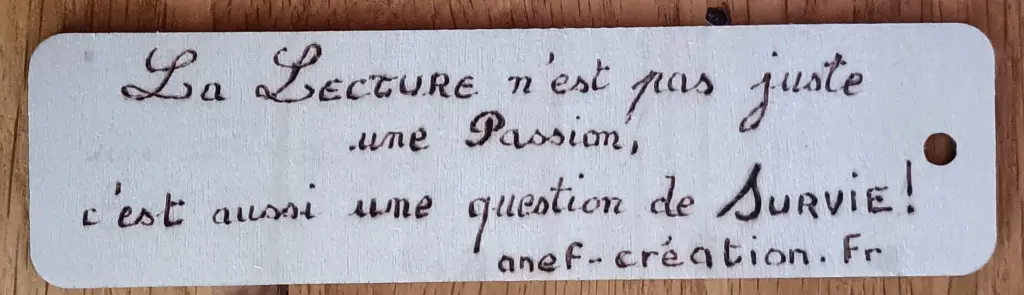 La LECTURE n'est pas juste
une Passion,
c'est aussi une question de SURVIE!
anef-création.Fr